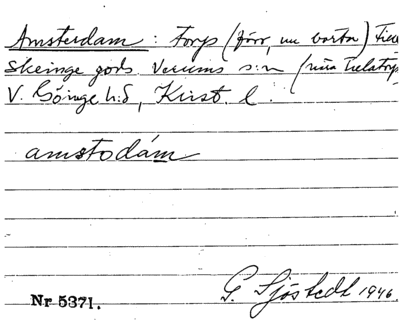 Amsterdam: Torp (förr, nu borta)
Skeinge gods Verums s:n (nära
V. Göinge h:d, Krist. l.
amstodám
G. Sjöstedt 1946.
Nr 5371.